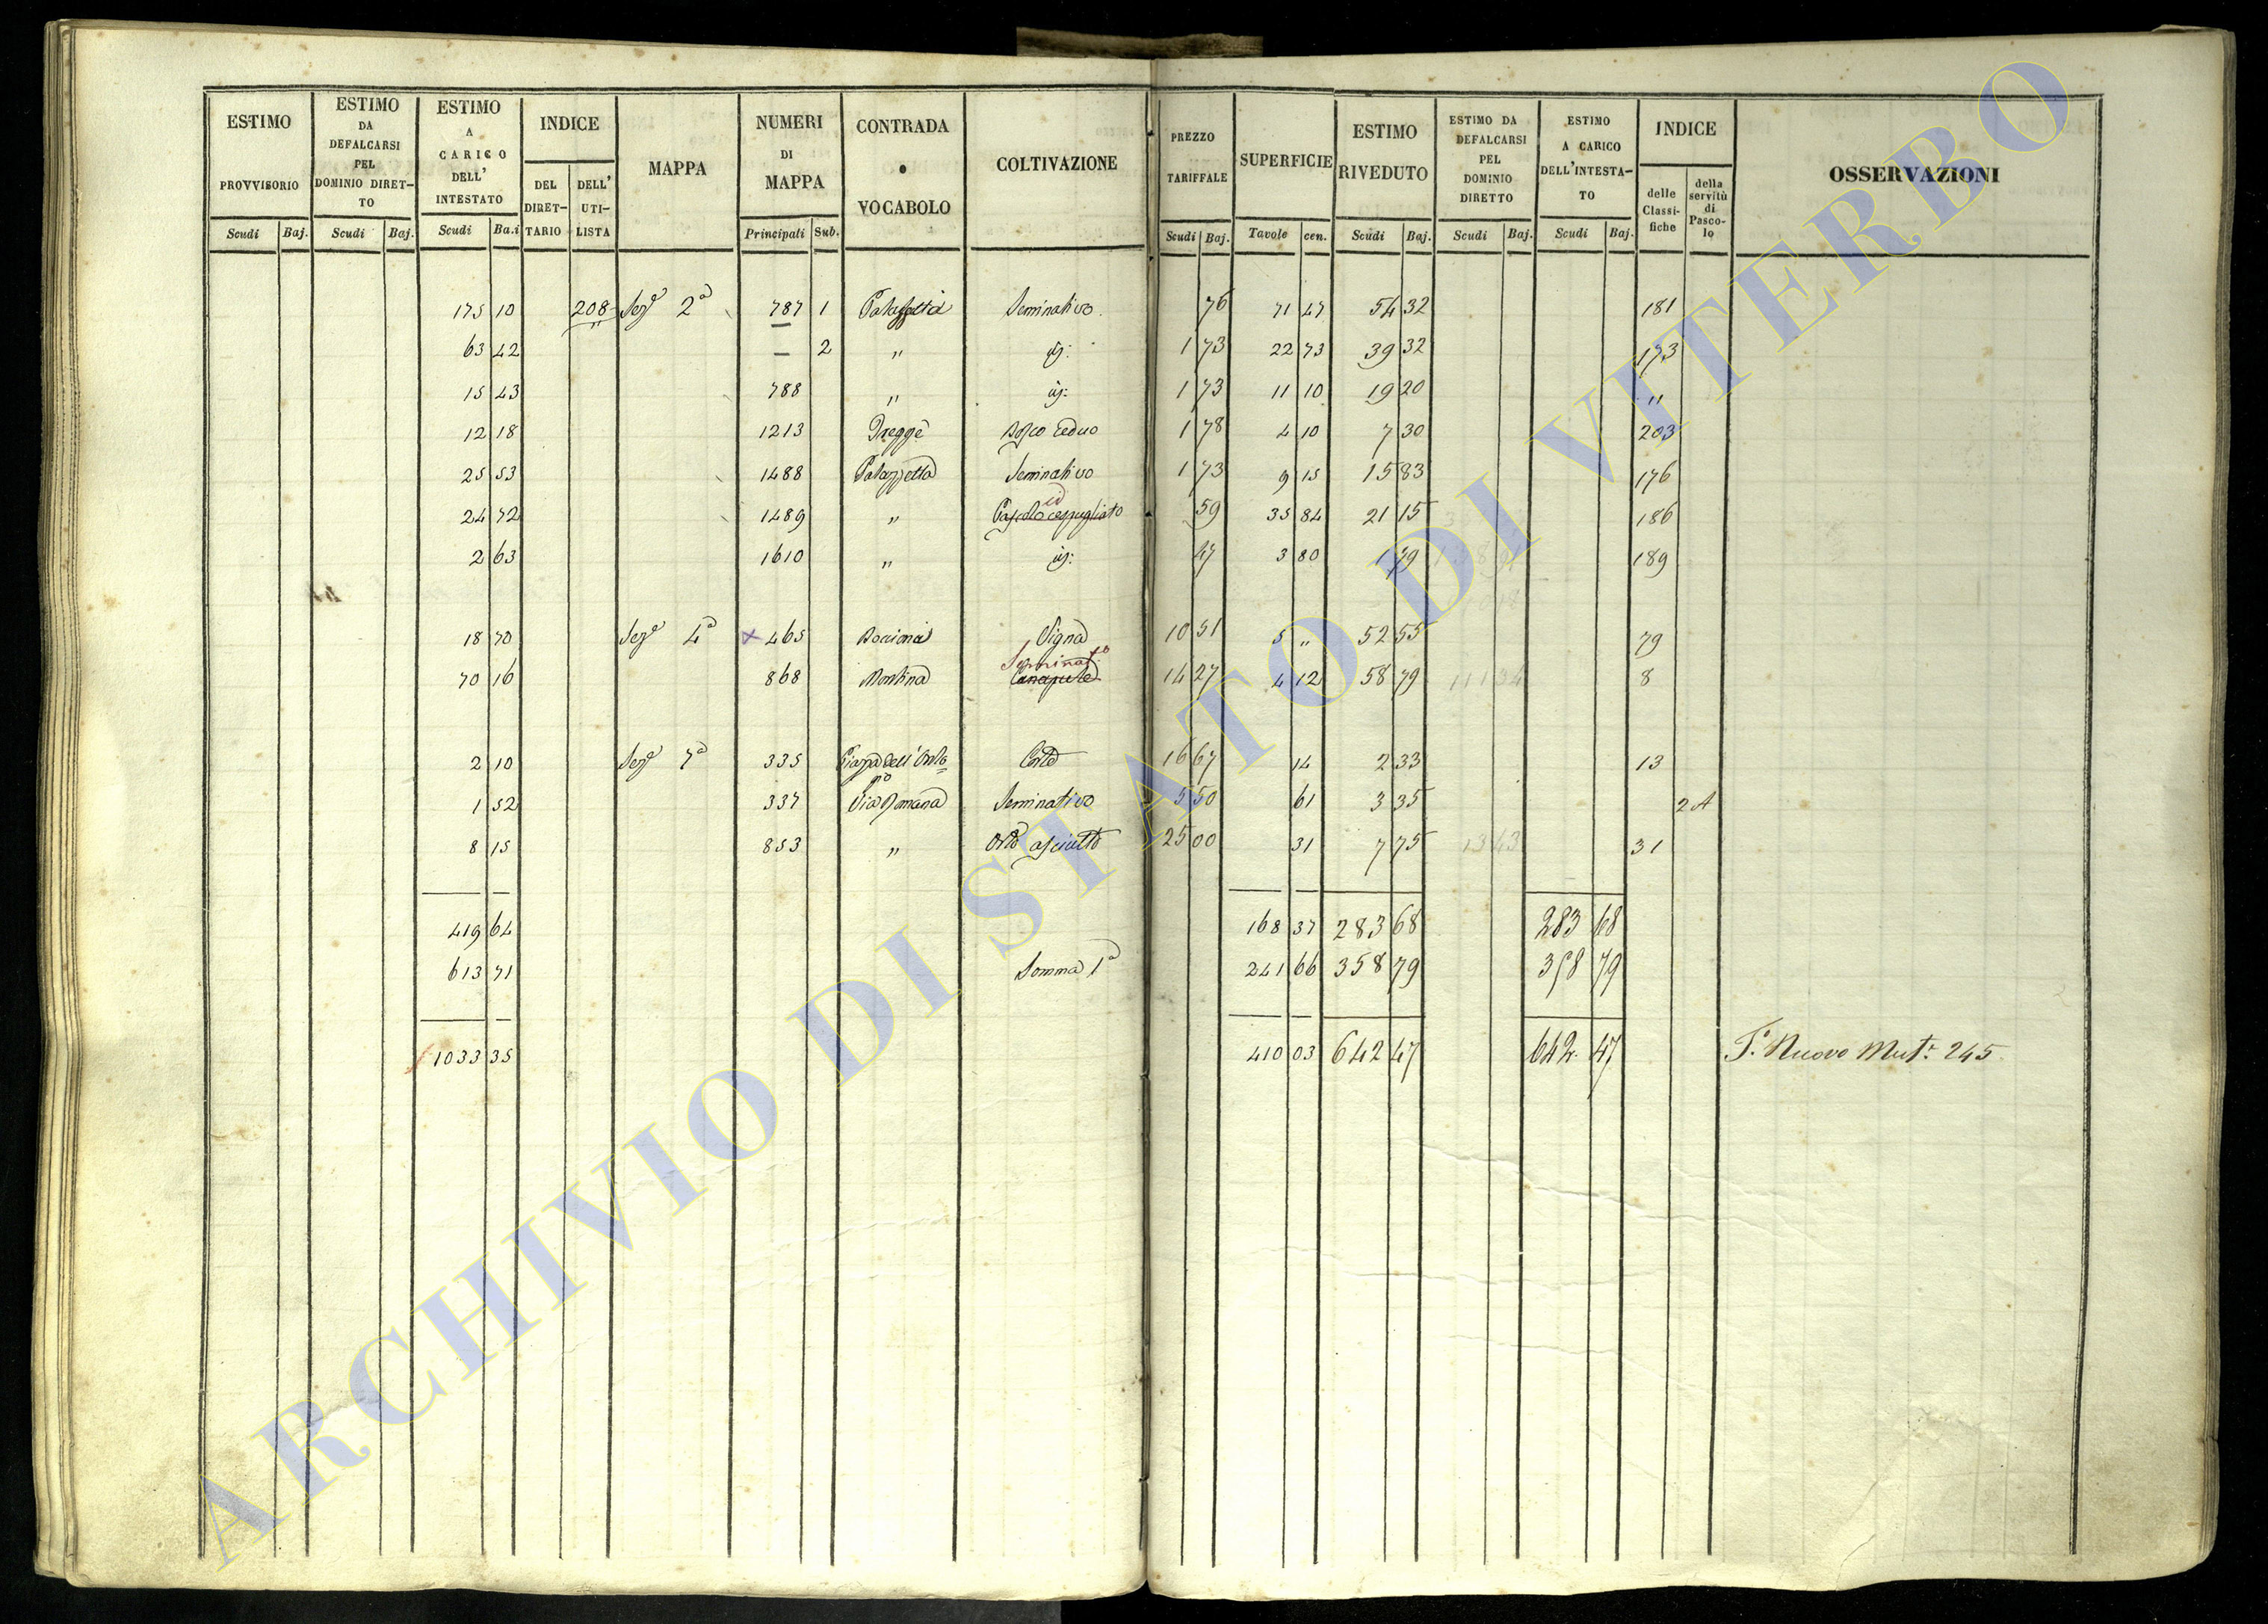 ESTIMO PROVVISORIO | ESTIMO DA DEFALCARSI PEL DOMINIO DIRETTO | ESTIMO A CARICO DELL' INTESTATO | INDICE | MAPPA | NUMERI DI MAPPA | CONTRADA o VOCABOLO | COLTIVAZIONE | PREZZO TARIFFALE | SUPERFICIE | ESTIMO RIVEDUTO | ESTIMO DA DEFALCARSI PEL DOMINIO DIRETTO | ESTIMO A CARICO DELL'INTESTATO | INDICE | OSSERVAZIONI
DEL DIRETTARIO | DELL' UTILISTA | delle Classifiche | della servitù di Pascolo
Scudi | Baj. | Scudi | Baj. | Scudi | Ba.i | Principali | Sub. | Scudi | Baj. | Tavole | cen. | Scudi | Baj. | Scudi | Baj. | Scudi | Baj.
175 10 | 208 | Sezª 2ª | 787 | 1 | Seminativo | 76 | 71 47 | 54 32 | 181
63 42 | — | 2 | " | id: | 1 73 | 22 73 | 39 32 | 173
15 43 | 788 | " | id: | 1 73 | 11 10 | 19 20 | "
12 18 | 1213 | Bosco Ceduo | 1 78 | 4 10 | 7 30 | 203
25 53 | 1488 | Palazzetta | Seminativo | 1 73 | 9 15 | 15 83 | 176
24 72 | 1489 | " | Pascolo cespugliato | 59 | 35 84 | 21 15 | 186
2 63 | 1610 | " | id: | 47 | 3 80 | 1 79 | 189
18 70 | Sezª 4ª | × 465 | Vigna | 10 51 | 5 " | 52 55 | 79
Seminatº
70 16 | 868 | Canapule | 14 27 | 4 12 | 58 79 | 8
2 10 | Sezª 7ª | 335 | Piazza dell' Orto | Corte | 16 67 | 14 | 2 33 | 13
1 52 | 337 | Via Romana | Seminativo | 5 50 | 61 | 3 35 | 2 A
8 15 | 853 | " | Orto asciutto | 25 00 | 31 | 7 75 | 31
419 64 | 168 37 | 283 68 | 283 68
613 71 | Somma 1ª | 241 66 | 358 79 | 358 79
1033 35 | 410 03 | 642 47 | 642 47 | Nuovo Mut. 245
ARCHIVIO DI STATO DI VITERBO